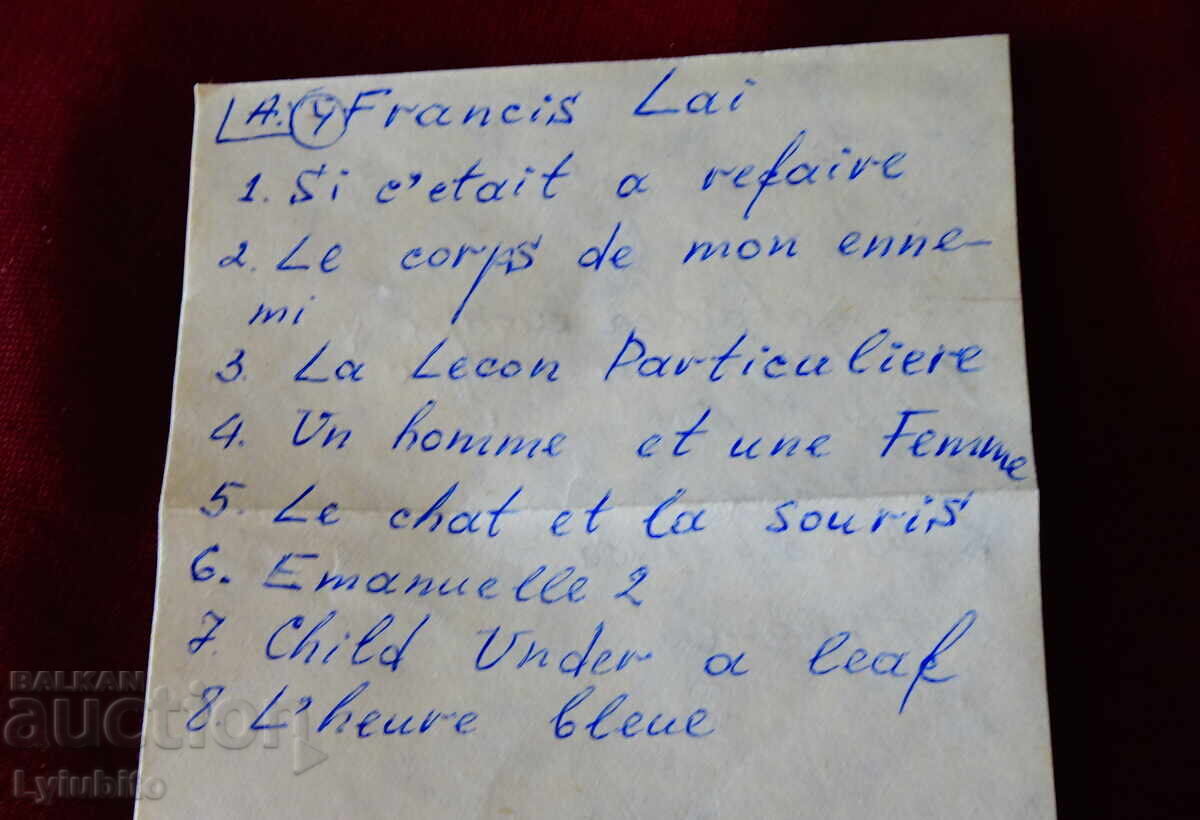 A. 4 Francis Lai
1. Si c'etait a refaire
2. Le corps de mon enne-
mi
3. La Lecon Particuliere
4. Un homme et une Femme
5. Le chat et la souris
6. Emanuelle 2
7. Child Under a leaf
8. L'heure bleue
BALKAN
auction
Lyiubito